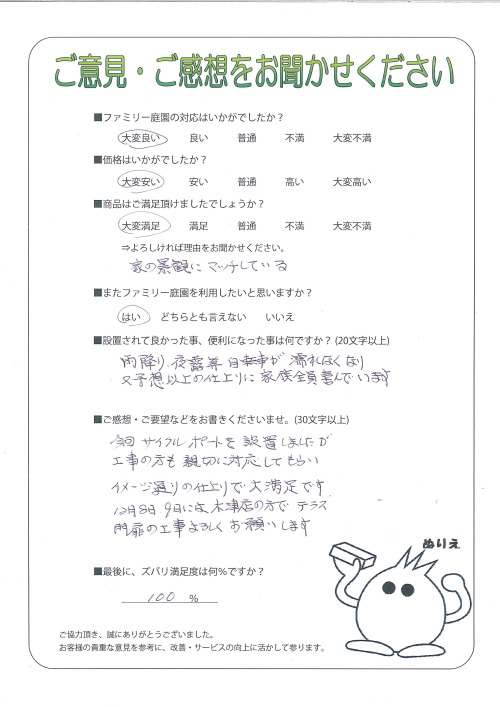 ご意見・ご感想をお聞かせください
■ファミリー庭園の対応はいかがでしたか？
大変良い 良い 普通 不満 大変不満
■価格はいかがでしたか？
大変安い 安い 普通 高い 大変高い
■商品はご満足頂けましたでしょうか？
大変満足 満足 普通 不満 大変不満
⇒よろしければ理由をお聞かせください。
家の景観にマッチしている
■またファミリー庭園を利用したいと思いますか？
はい どちらとも言えない いいえ
■設置されて良かった事、便利になった事は何ですか？(20文字以上)
雨降り、夜露等 自転車が濡れなくなり
又予想以上の仕上りに家族全員喜んでいます
■ご感想・ご要望などをお書きくださいませ。(30文字以上)
今回サイクルポートを設置しましたが
工事の方も親切に対応してもらい
イメージ通りの仕上りで大満足です
12月8日、9日には木津店の方でテラス
門扉の工事よろしくお願いします
ぬりえ
■最後に、ズバリ満足度は何％ですか？
100 ％
ご協力頂き、誠にありがとうございました。
お客様の貴重な意見を参考に、改善・サービスの向上に活かして参ります。